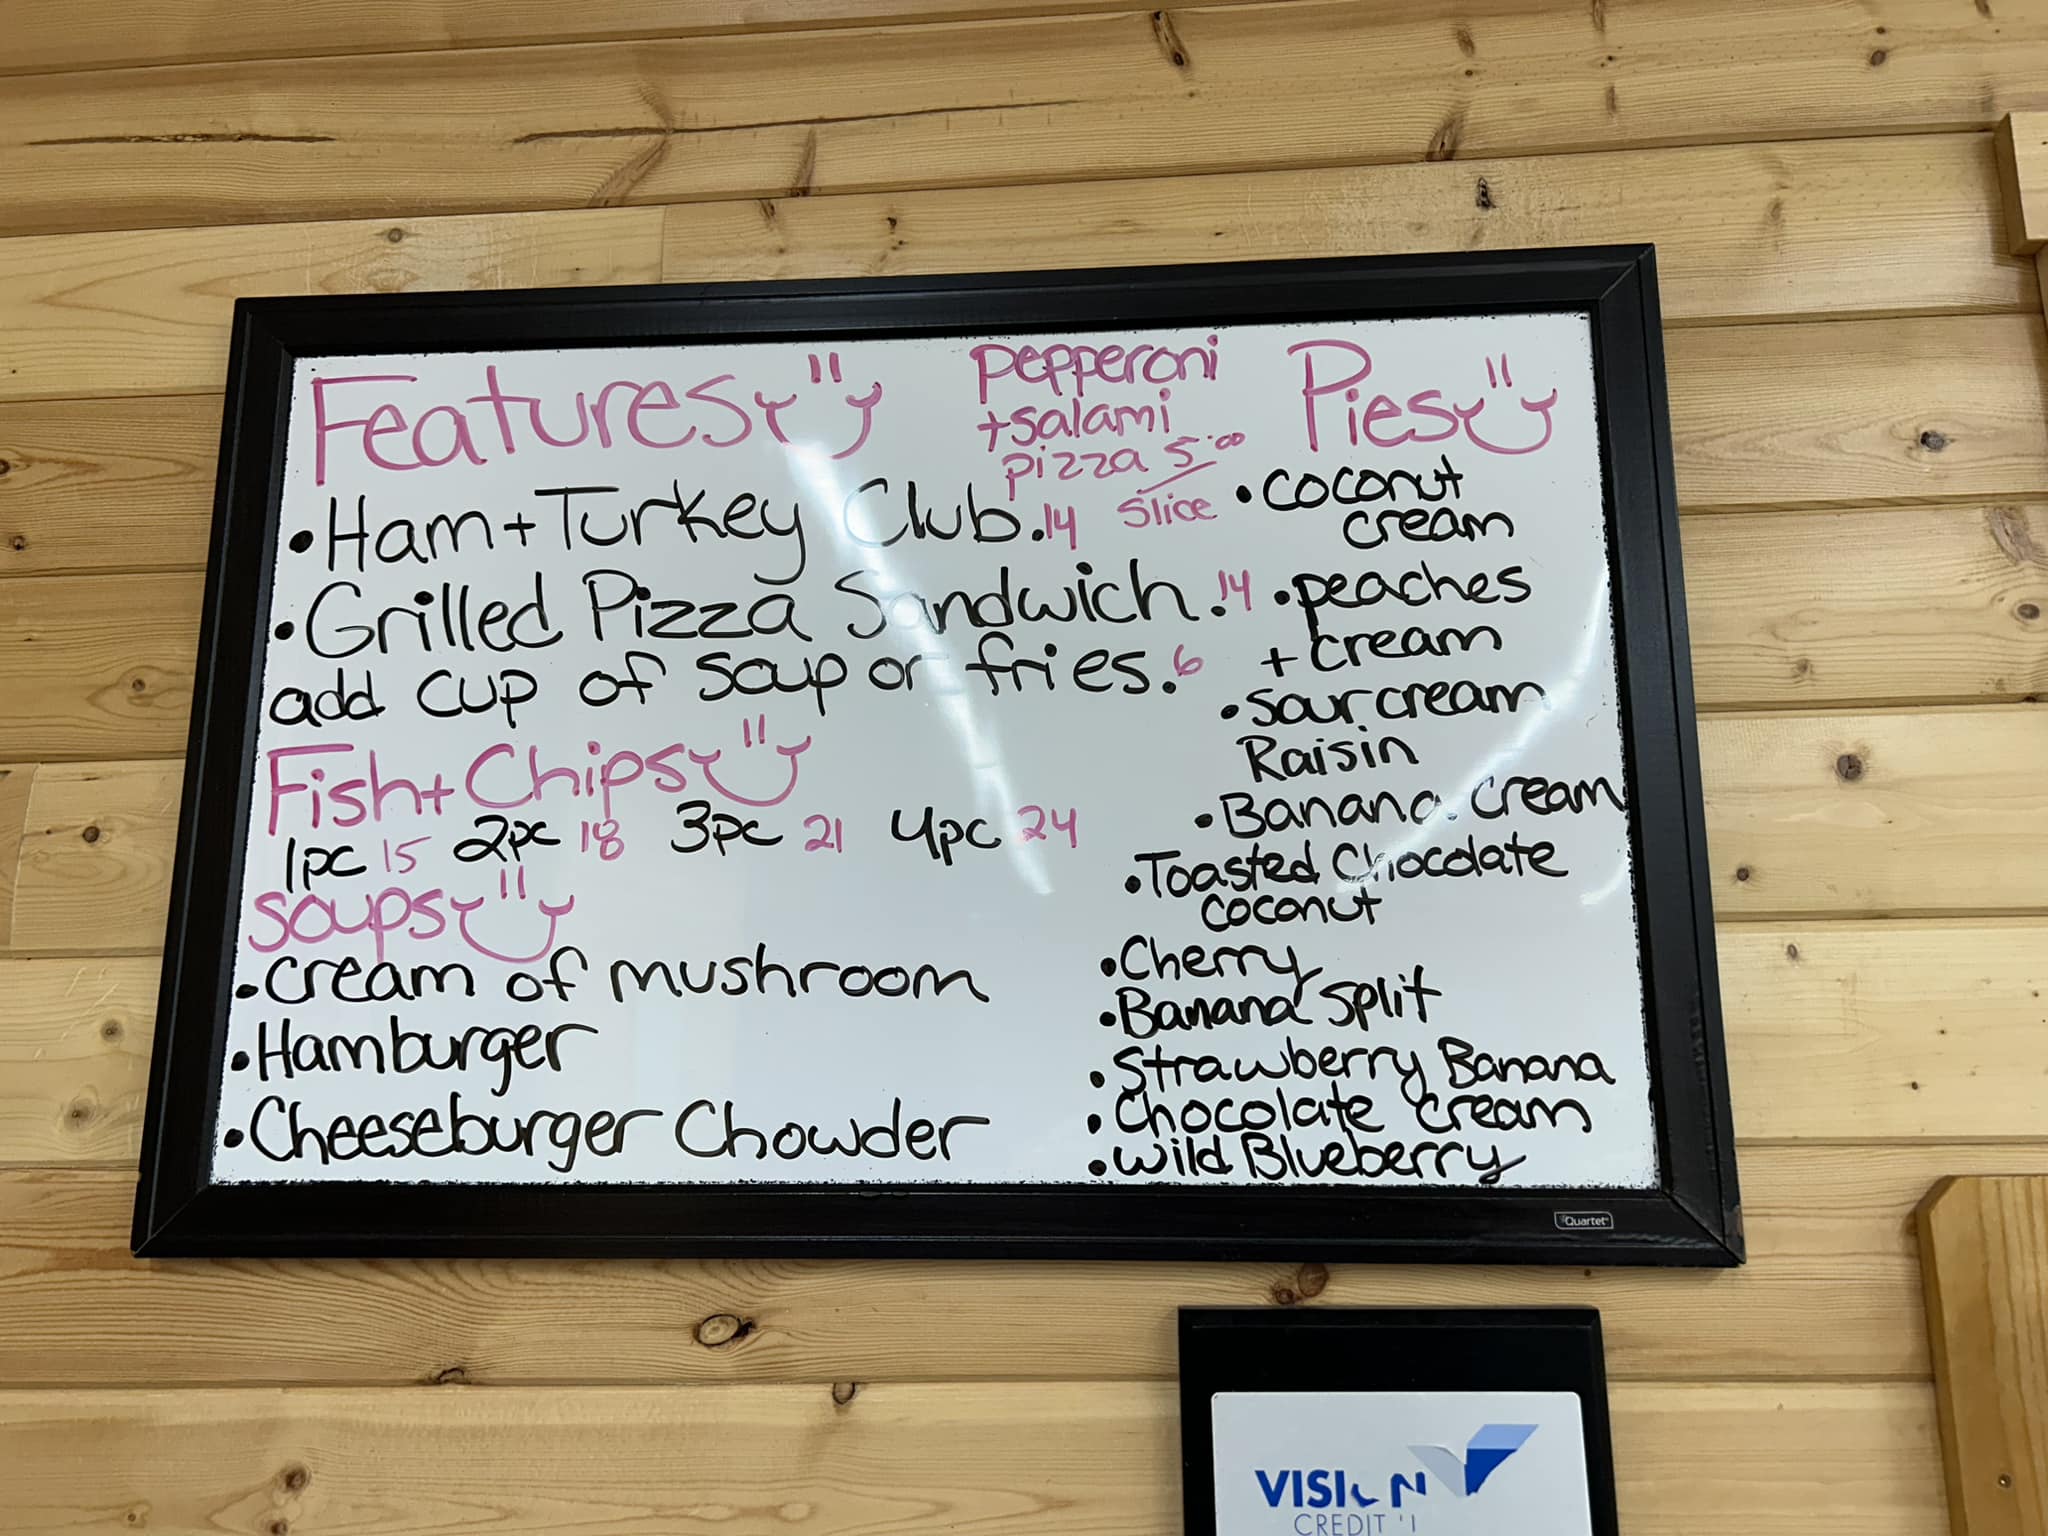 Features
• Ham + Turkey Club. 14
• Grilled Pizza Sandwich. 14
add cup of soup or fries. 6
Pepperoni
+ salami
pizza 5.00
slice
Fish + Chips
1pc 15 2pc 18 3pc 21 4pc 24
soups
• cream of mushroom
• Hamburger
• Cheeseburger Chowder
Pies
• coconut
cream
• peaches
+ cream
• sour cream
Raisin
• Banana Cream
• Toasted Chocolate
coconut
• Cherry
• Banana Split
• Strawberry Banana
• Chocolate cream
• Wild Blueberry
Quartet
CREDIT